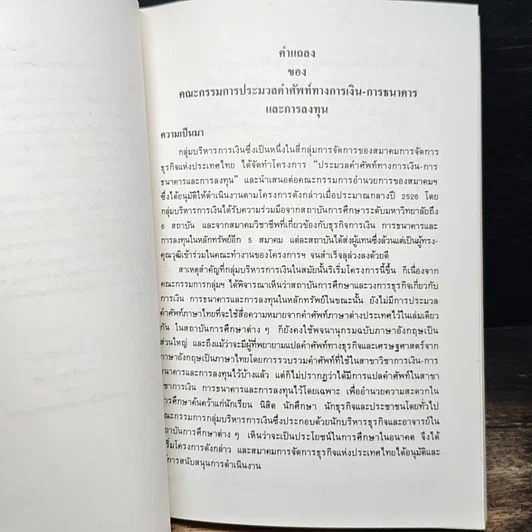 คำแถลง
ของ
คณะกรรมการประมวลคำศัพท์ทางการเงิน-การธนาคาร
และการลงทุน
ความเป็นมา
กลุ่มบริหารการเงินซึ่งเป็นหนึ่งในสี่กลุ่มการจัดการของสมาคมการจัดการ
ธุรกิจแห่งประเทศไทย ได้จัดทำโครงการ "ประมวลคำศัพท์ทางการเงิน-การ
ธนาคารและการลงทุน" และนำเสนอต่อคณะกรรมการอำนวยการของสมาคมฯ
ซึ่งได้อนุมัติให้ดำเนินงานตามโครงการดังกล่าวเมื่อประมาณกลางปี 2526 โดย
กลุ่มบริหารการเงินได้รับความร่วมมือจากสถาบันการศึกษาระดับมหาวิทยาลัยถึง
6 สถาบัน และจากสมาคมวิชาชีพที่เกี่ยวข้องกับธุรกิจการเงิน การธนาคารและ
การลงทุนในหลักทรัพย์อีก 5 สมาคม แต่ละสถาบันได้ส่งผู้แทนซึ่งล้วนแต่เป็นผู้ทรง-
คุณวุฒิเข้าร่วมในคณะทำงานของโครงการฯ จนสำเร็จลุล่วงลงด้วยดี
สาเหตุสำคัญที่กลุ่มบริหารการเงินในสมัยนั้นริเริ่มโครงการนี้ขึ้น ก็เนื่องจาก
คณะกรรมการกลุ่มฯ ได้พิจารณาเห็นว่าสถาบันการศึกษาและวงการธุรกิจเกี่ยวกับ
การเงิน การธนาคารและการลงทุนในหลักทรัพย์ในขณะนั้น ยังไม่มีการประมวล
คำศัพท์ภาษาไทยที่จะใช้สื่อความหมายจากคำศัพท์ภาษาต่างประเทศไว้ในเล่มเดียว
กัน ในสถาบันการศึกษาต่าง ๆ ก็ยังคงใช้พจนานุกรมฉบับภาษาอังกฤษเป็น
ส่วนใหญ่ และถึงแม้ว่าจะมีผู้ที่พยายามแปลคำศัพท์ทางธุรกิจและเศรษฐศาสตร์จาก
ภาษาอังกฤษเป็นภาษาไทยโดยการรวบรวมคำศัพท์ที่ใช้ในสาขาวิชาการเงิน-การ
ธนาคารและการลงทุนไว้บ้างแล้ว แต่ก็ไม่ปรากฏว่าได้มีการแปลคำศัพท์ในสาขา
วิชาการเงิน การธนาคารและการลงทุนไว้โดยเฉพาะ เพื่ออำนวยความสะดวกใน
การศึกษาค้นคว้าแก่นักเรียน นิสิต นักศึกษา นักธุรกิจและประชาชนโดยทั่วไป
คณะกรรมการกลุ่มบริหารการเงินซึ่งประกอบด้วยนักบริหารธุรกิจและอาจารย์ใน
สถาบันการศึกษาต่าง ๆ เห็นว่าจะเป็นประโยชน์ในการศึกษาในอนาคต จึงได้
ริเริ่มโครงการดังกล่าว และสมาคมการจัดการธุรกิจแห่งประเทศไทยได้อนุมัติและ
การสนับสนุนการดำเนินงาน